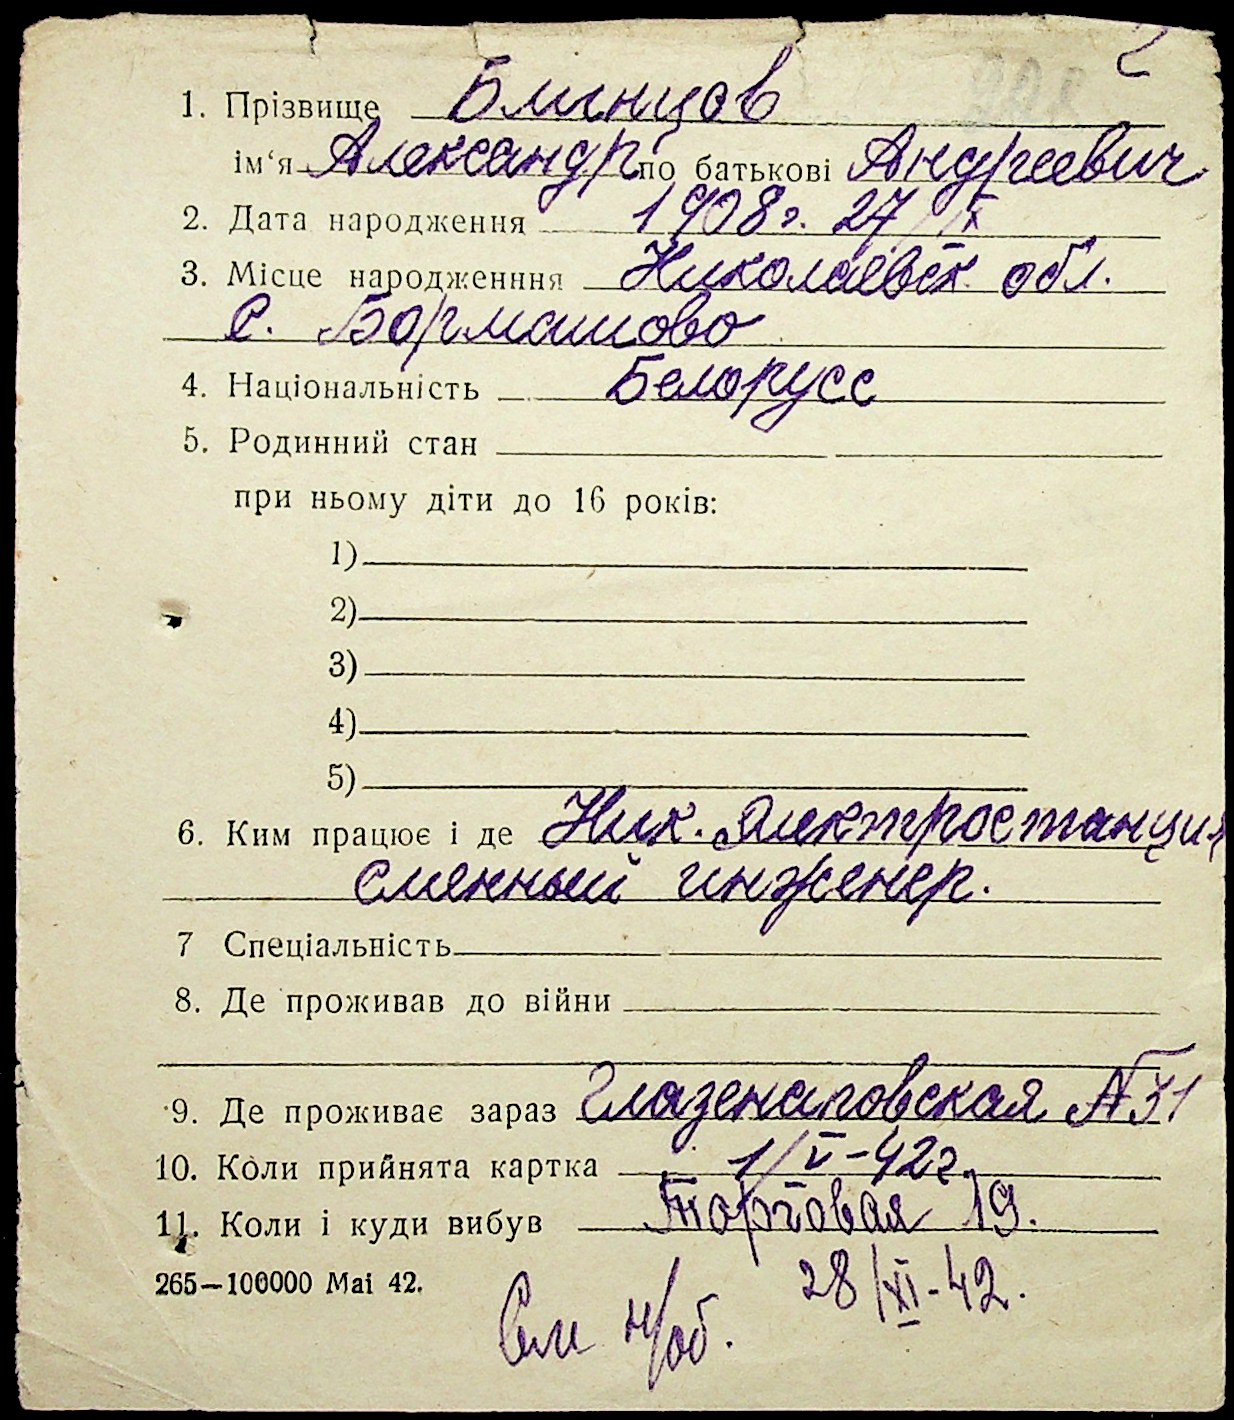 2
1. Прізвище Блинцов
ім‘я Александр по батькові Андреевич
2. Дата народження 1908г. 27/IX
3. Місце народженння Николаевск. обл.
с.
4. Національність Белорусс
5. Родинний стан
при ньому діти до 16 років:
1)
2)
3)
4)
5)
6. Ким працює і де Ник. Электростанция
сменный инженер.
7 Спеціальність
8. Де проживав до війни
9. Де проживає зараз Глазенаповская №31
10. Коли прийнята картка 1/V-42г
11. Коли і куди вибув Торговая 19.
265—100000 Mai 42.
28/XI-42.
См н/об.